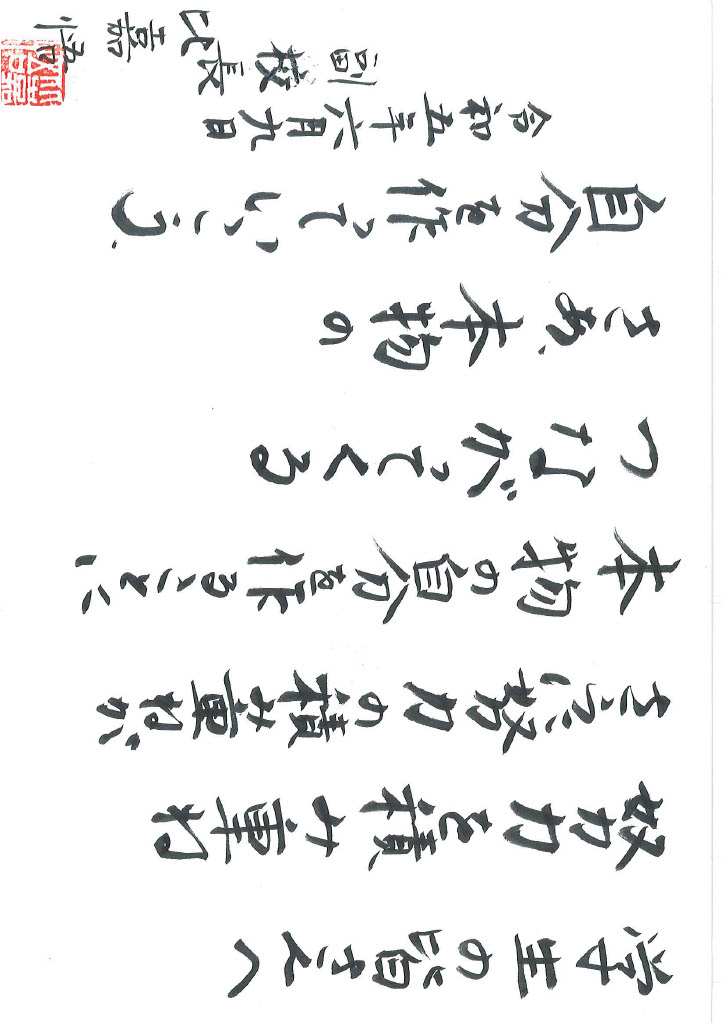 学生の皆さんへ
努力を積み重ね
さらに努力の積み重ねが
本物の自分を作ることに
つながってくる
さあ、本物の
自分を作っていこう。
令和五年六月九日
副校長
比嘉 悟